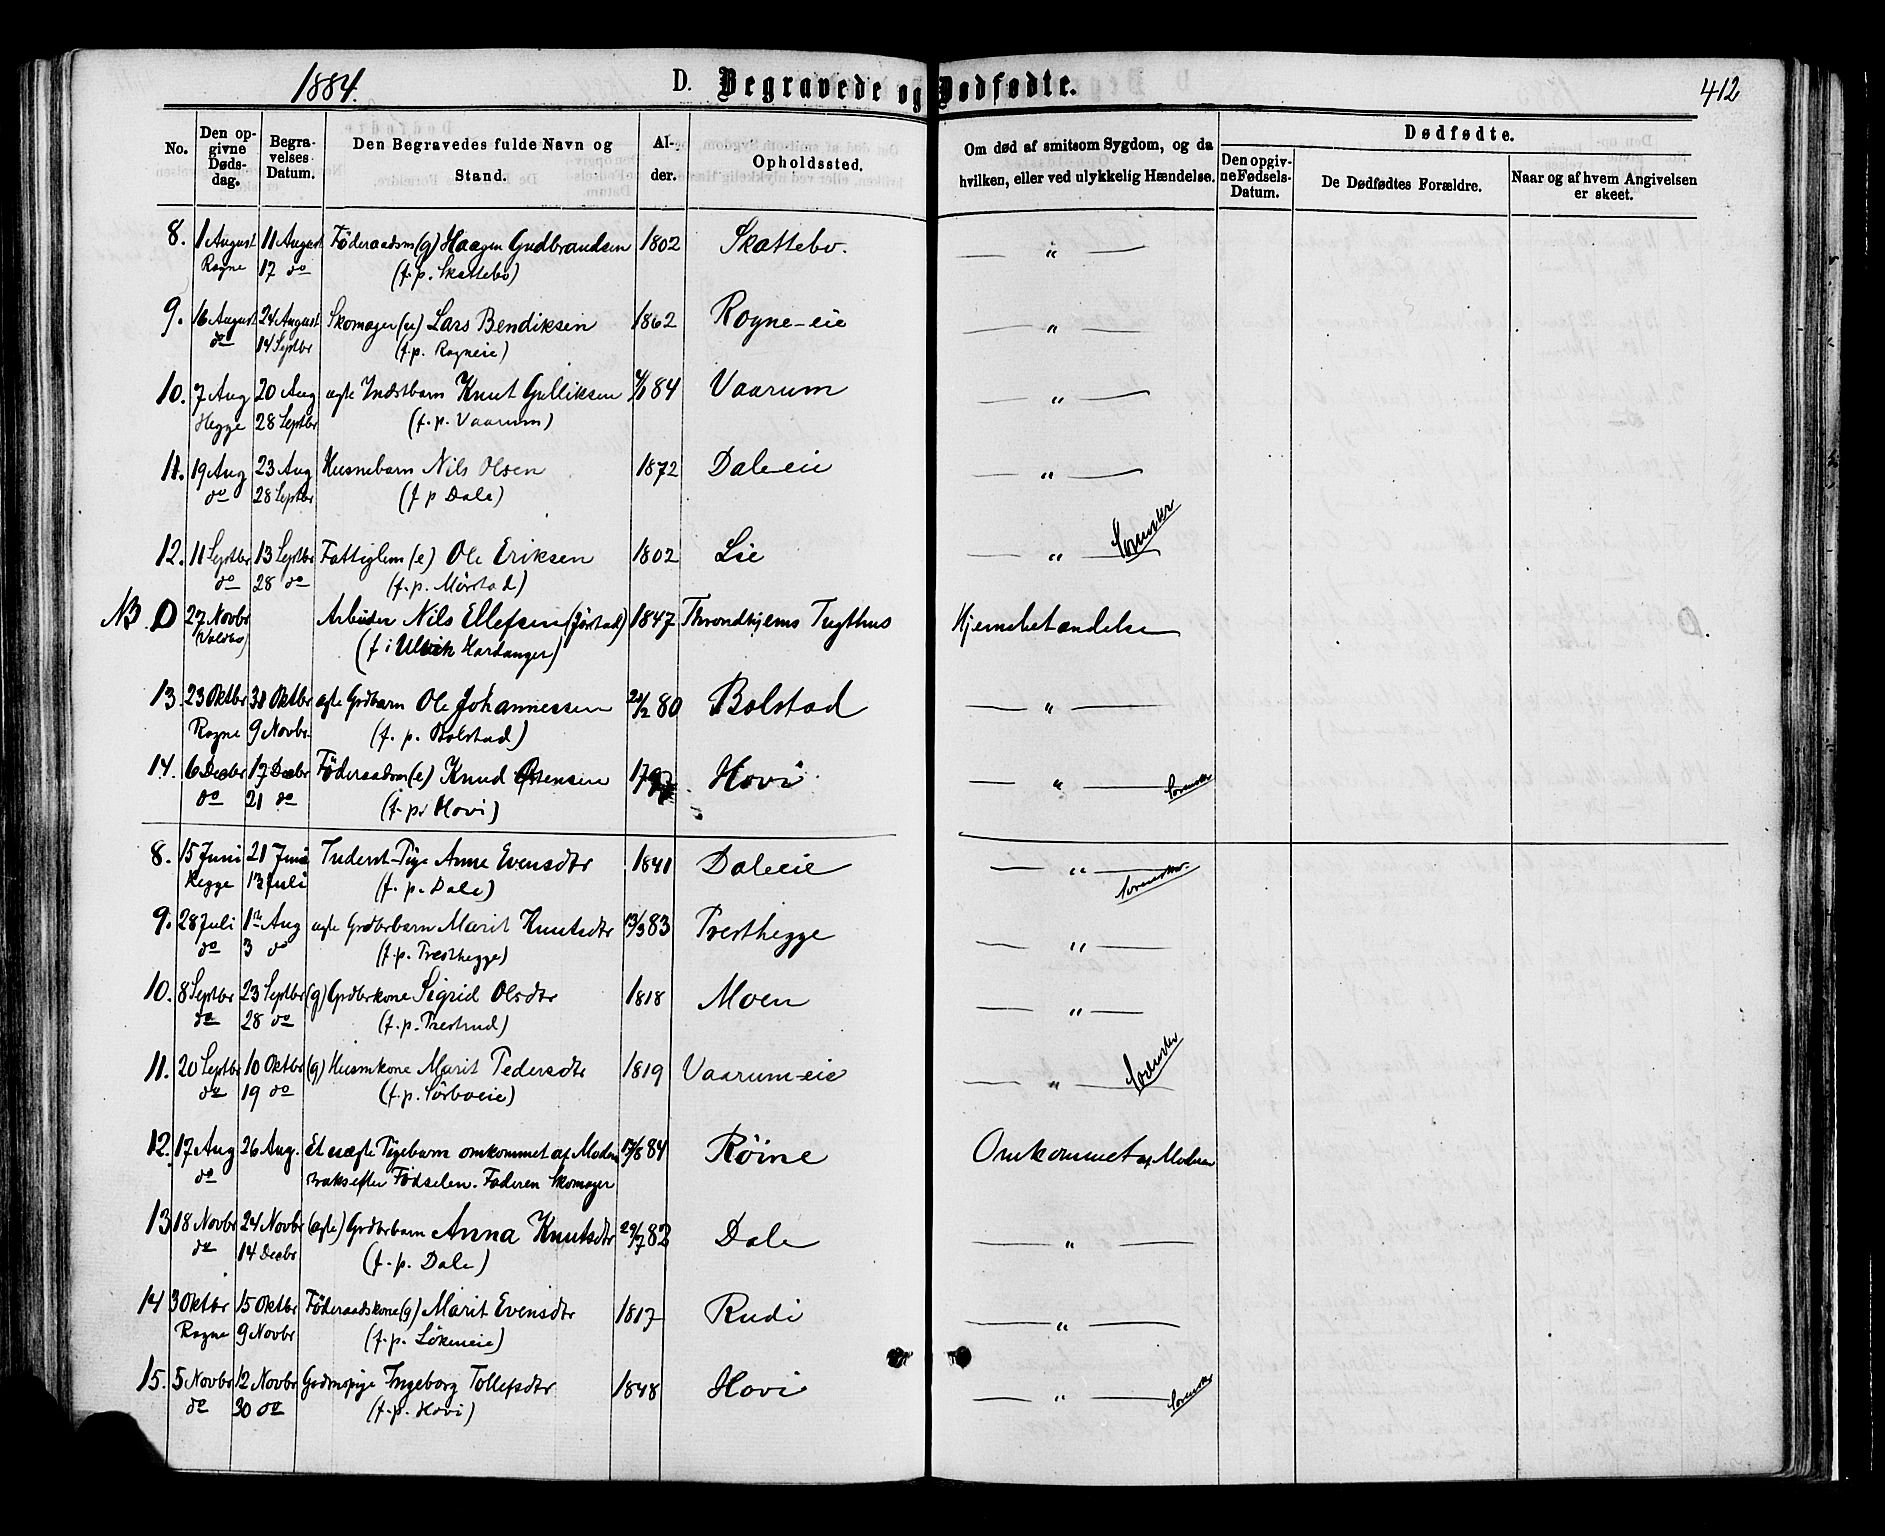 1884.
D. Begravede og Dødfødte.
412
No.
Den opgivne Dødsdag.
Begravelses Datum.
Den Begravedes fulde Navn og Stand.
Alder.
Opholdssted.
Om død af smitsom Sygdom, og da hvilken, eller ved ulykkelig Hændelse.
Dødfødte.
Den opgivne Fødsels-Datum.
De Dødfødtes Forældre.
Naar og af hvem Angivelsen er skeet.
8. 1 August 11 August Föderaadsm (g) Haagen Gudbrandsen 1802 Skattebo. — " —
Rogne 17 do (f. p. Skattebo)
9. 16 August 24 August Skomager (u) Lars Bendiksen 1862 Rogne-eie — " —
do 14 Septbr (f. p. Rogneie)
10. 7 Aug 20 Aug ægte Indstbarn Knut Gulliksen 84 Vaarum — " —
Hegge 28 Septbr (f. p. Vaarum)
11. 19 Aug 23 Aug Husmbarn Nils Olsen 1872 Daleeie — " —
do 28 Septbr (f p Dale)
12. 11 Septbr 13 Septbr Fattiglem (e) Ole Eriksen 1802 Lie — " —
do 28 do (f. p. Mörstad)
NB. 0 27 Novbr Arbeider Nils Ellefsen (Jörstad) 1847 Throndhjems Tugthus Hjernebetændelse
(Volbo) (f i Ulvik Hardanger)
13. 23 Oktbr 31 Oktbr ægte Grdbarn Ole Johannessen 80 Bolstad — " —
Rogne 9 Novbr (f. p. Bolstad)
14. 6 Decbr 17 Decbr Föderaadsm (e) Knud Östensen Hovi — " —
do 21 do (f. p. Hovi)
8. 15 Juni 21 Juni Inderst-Pige Anne Evensdtr 1841 Daleeie — " —
Hegge 13 Juli (f. p. Dale)
9. 28 Juli 1ste Aug ægte Grdbrbarn Marit Knutsdtr 13/3 83 Presthegge — " —
do 3 do (f. p. Presthegge)
10. 8 Septbr 23 Septbr (g) Grdbrkone Sigrid Olsdtr 1818 Moen — " —
do 28 do (f. p. Prestrud)
11. 20 Septbr 10 Oktbr (g) Husmkone Marit Pedersdtr 1819 Vaarum-eie — " —
do 19 do (f. p. Sörboeie)
12. 17 Aug 26 Aug. Et uægte Pigebarn omkommet af Moderen 17/8 84 Röine Omkommet af Moderen
do straks efter Födselen. Faderen Skomager
13 18 Novbr 24 Novbr (ægte) Grdbrbarn Anna Knutsdtr 29/7 82 Dale — " —
do 14 Decbr (f. p. Dale)
14 3 Oktbr 15 Oktbr Föderaadskone (g) Marit Evensdtr 1817 Rudi — " —
Rogne 9 Novbr (f. p. Lökeneie)
15. 5 Novbr 12 Novbr Grdmspige Ingeborg Tollefsdtr 1848 Hovi — " —
do 30 do (f. p. Hovi)